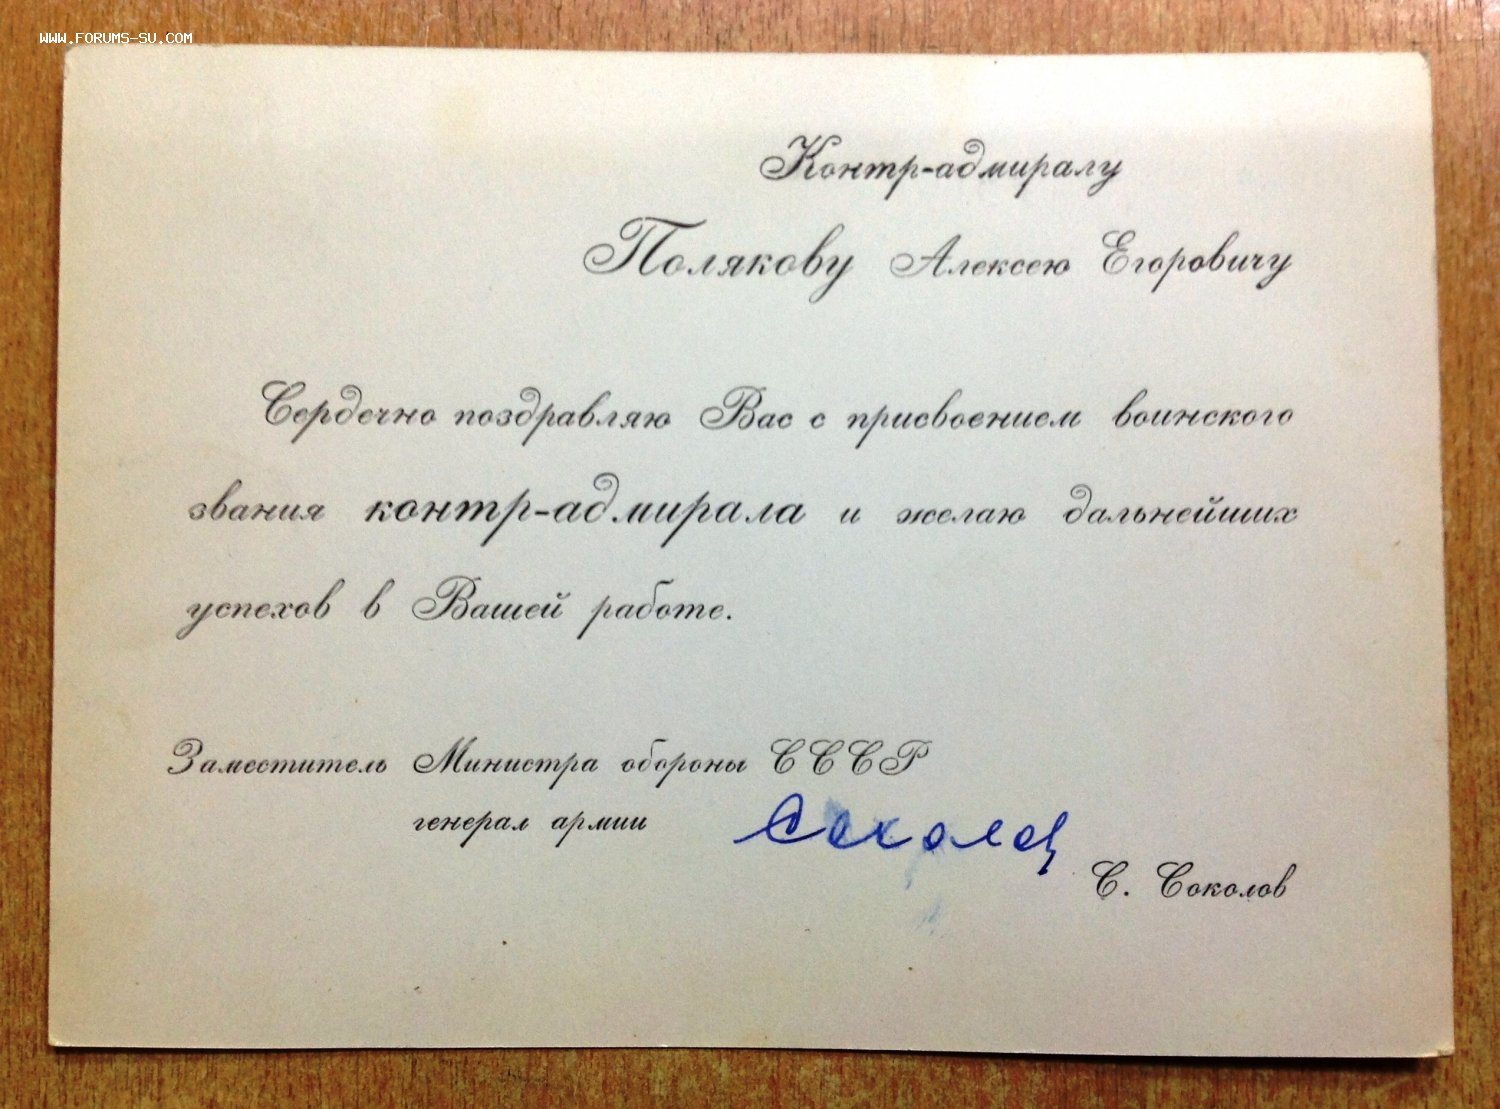 WWW.FORUMS-SU.COM
Контр-адмиралу
Полякову Алексею Егоровичу
Сердечно поздравляю Вас с присвоением воинского
звания контр-адмирала и желаю дальнейших
успехов в Вашей работе.
Заместитель Министра обороны СССР
генерал армии
Соколов
С. Соколов